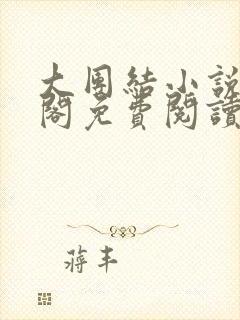 大團結小說
閣免費閱讀
蔣丰